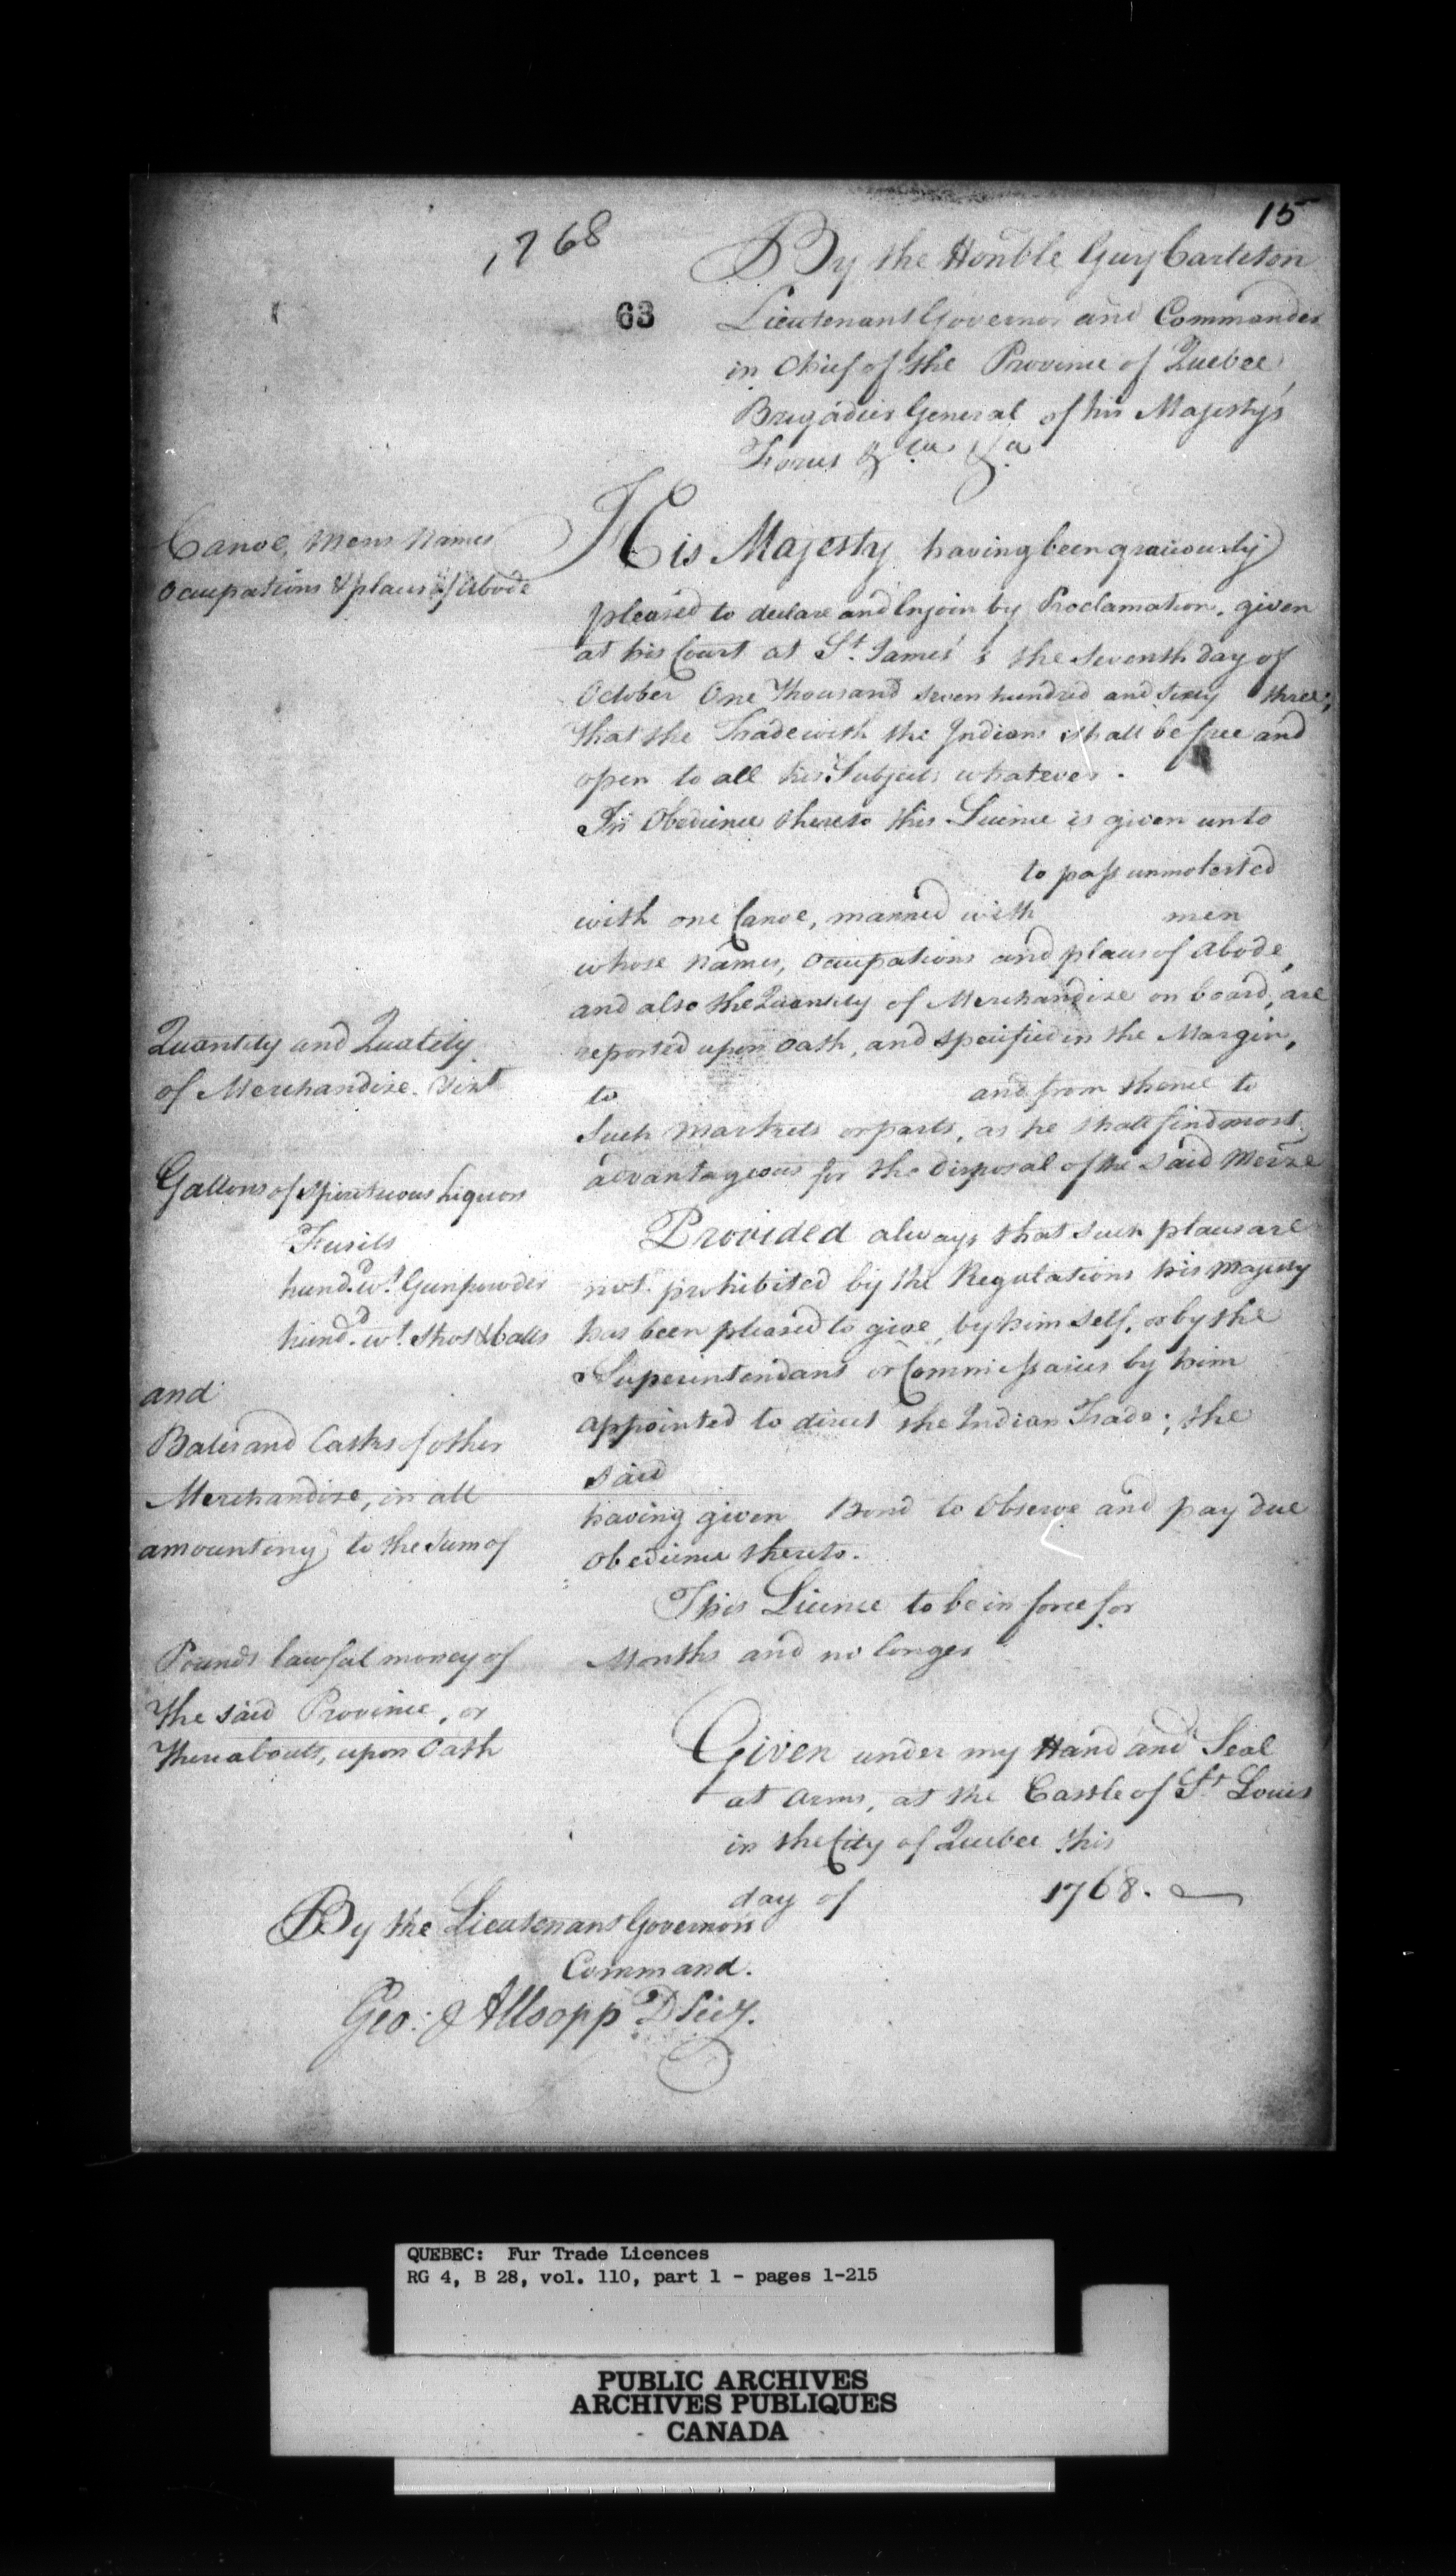 15
1768
63
By the Honble Guy Carleton
Lieutenant Governor and Commander
in Chief of the Province of Quebec,
Brigadier General of his Majesty's
Forces &ca &ca
Canoe, Mens Names
Occupations & places of Abode
His Majesty having been graciously
pleased to declare and Enjoin by Proclamation, given
at his Court at St. James's the seventh day of
October One Thousand seven hundred and sixty three;
that the Trade with the Indians shall be free and
open to all his Subjects whatever.
In Obedience thereto this Licence is given unto
to pass unmolested
with one Canoe, manned with men
whose names, Occupations and places of Abode,
and also the Quantity of Merchandize on board, are
reported upon Oath, and specified in the Margin,
to and from thence to
Such Markets or parts, as he shall find most
advantageous for the disposal of the said Merze
Provided always that such places are
not prohibited by the Regulations his Majesty
has been pleased to give, by himself, or by the
Superintendans or Commissaries by him
appointed to direct the Indian Trade; the
said
having given Bond to Observe and pay due
obedience thereto.
This Licence to be in force for
Months and no longer
Quantity and Quality
of Merchandize. Vizt
Gallons of Spirituous Liquors
Fusils
hund.d wt. Gunpowder
hund.d wt. Shot & balls
and
Bales and Casks of other
Merchandize, in all
amounting to the Sum of
Pounds lawful money of
the said Province, or
thereabouts, upon Oath
Given under my Hand and Seal
at Arms, at the Castle of St Louis
in the City of Quebec this
day of 1768.
By the Lieutenant Governors
Command.
Geo: Allsopp D Secy.
QUEBEC: Fur Trade Licences
RG 4, B 28, vol. 110, part 1 - pages 1-215
PUBLIC ARCHIVES
ARCHIVES PUBLIQUES
CANADA